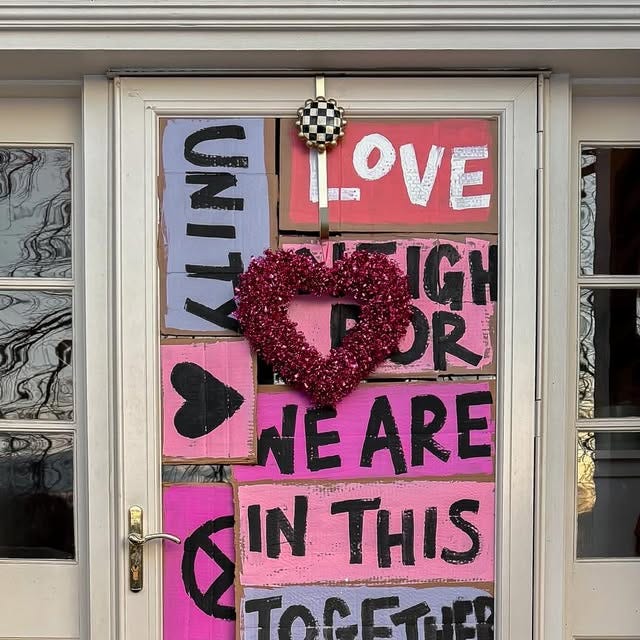 UNITY
LOVE
NEIGH
BOR
WE ARE
IN THIS
TOGETHER